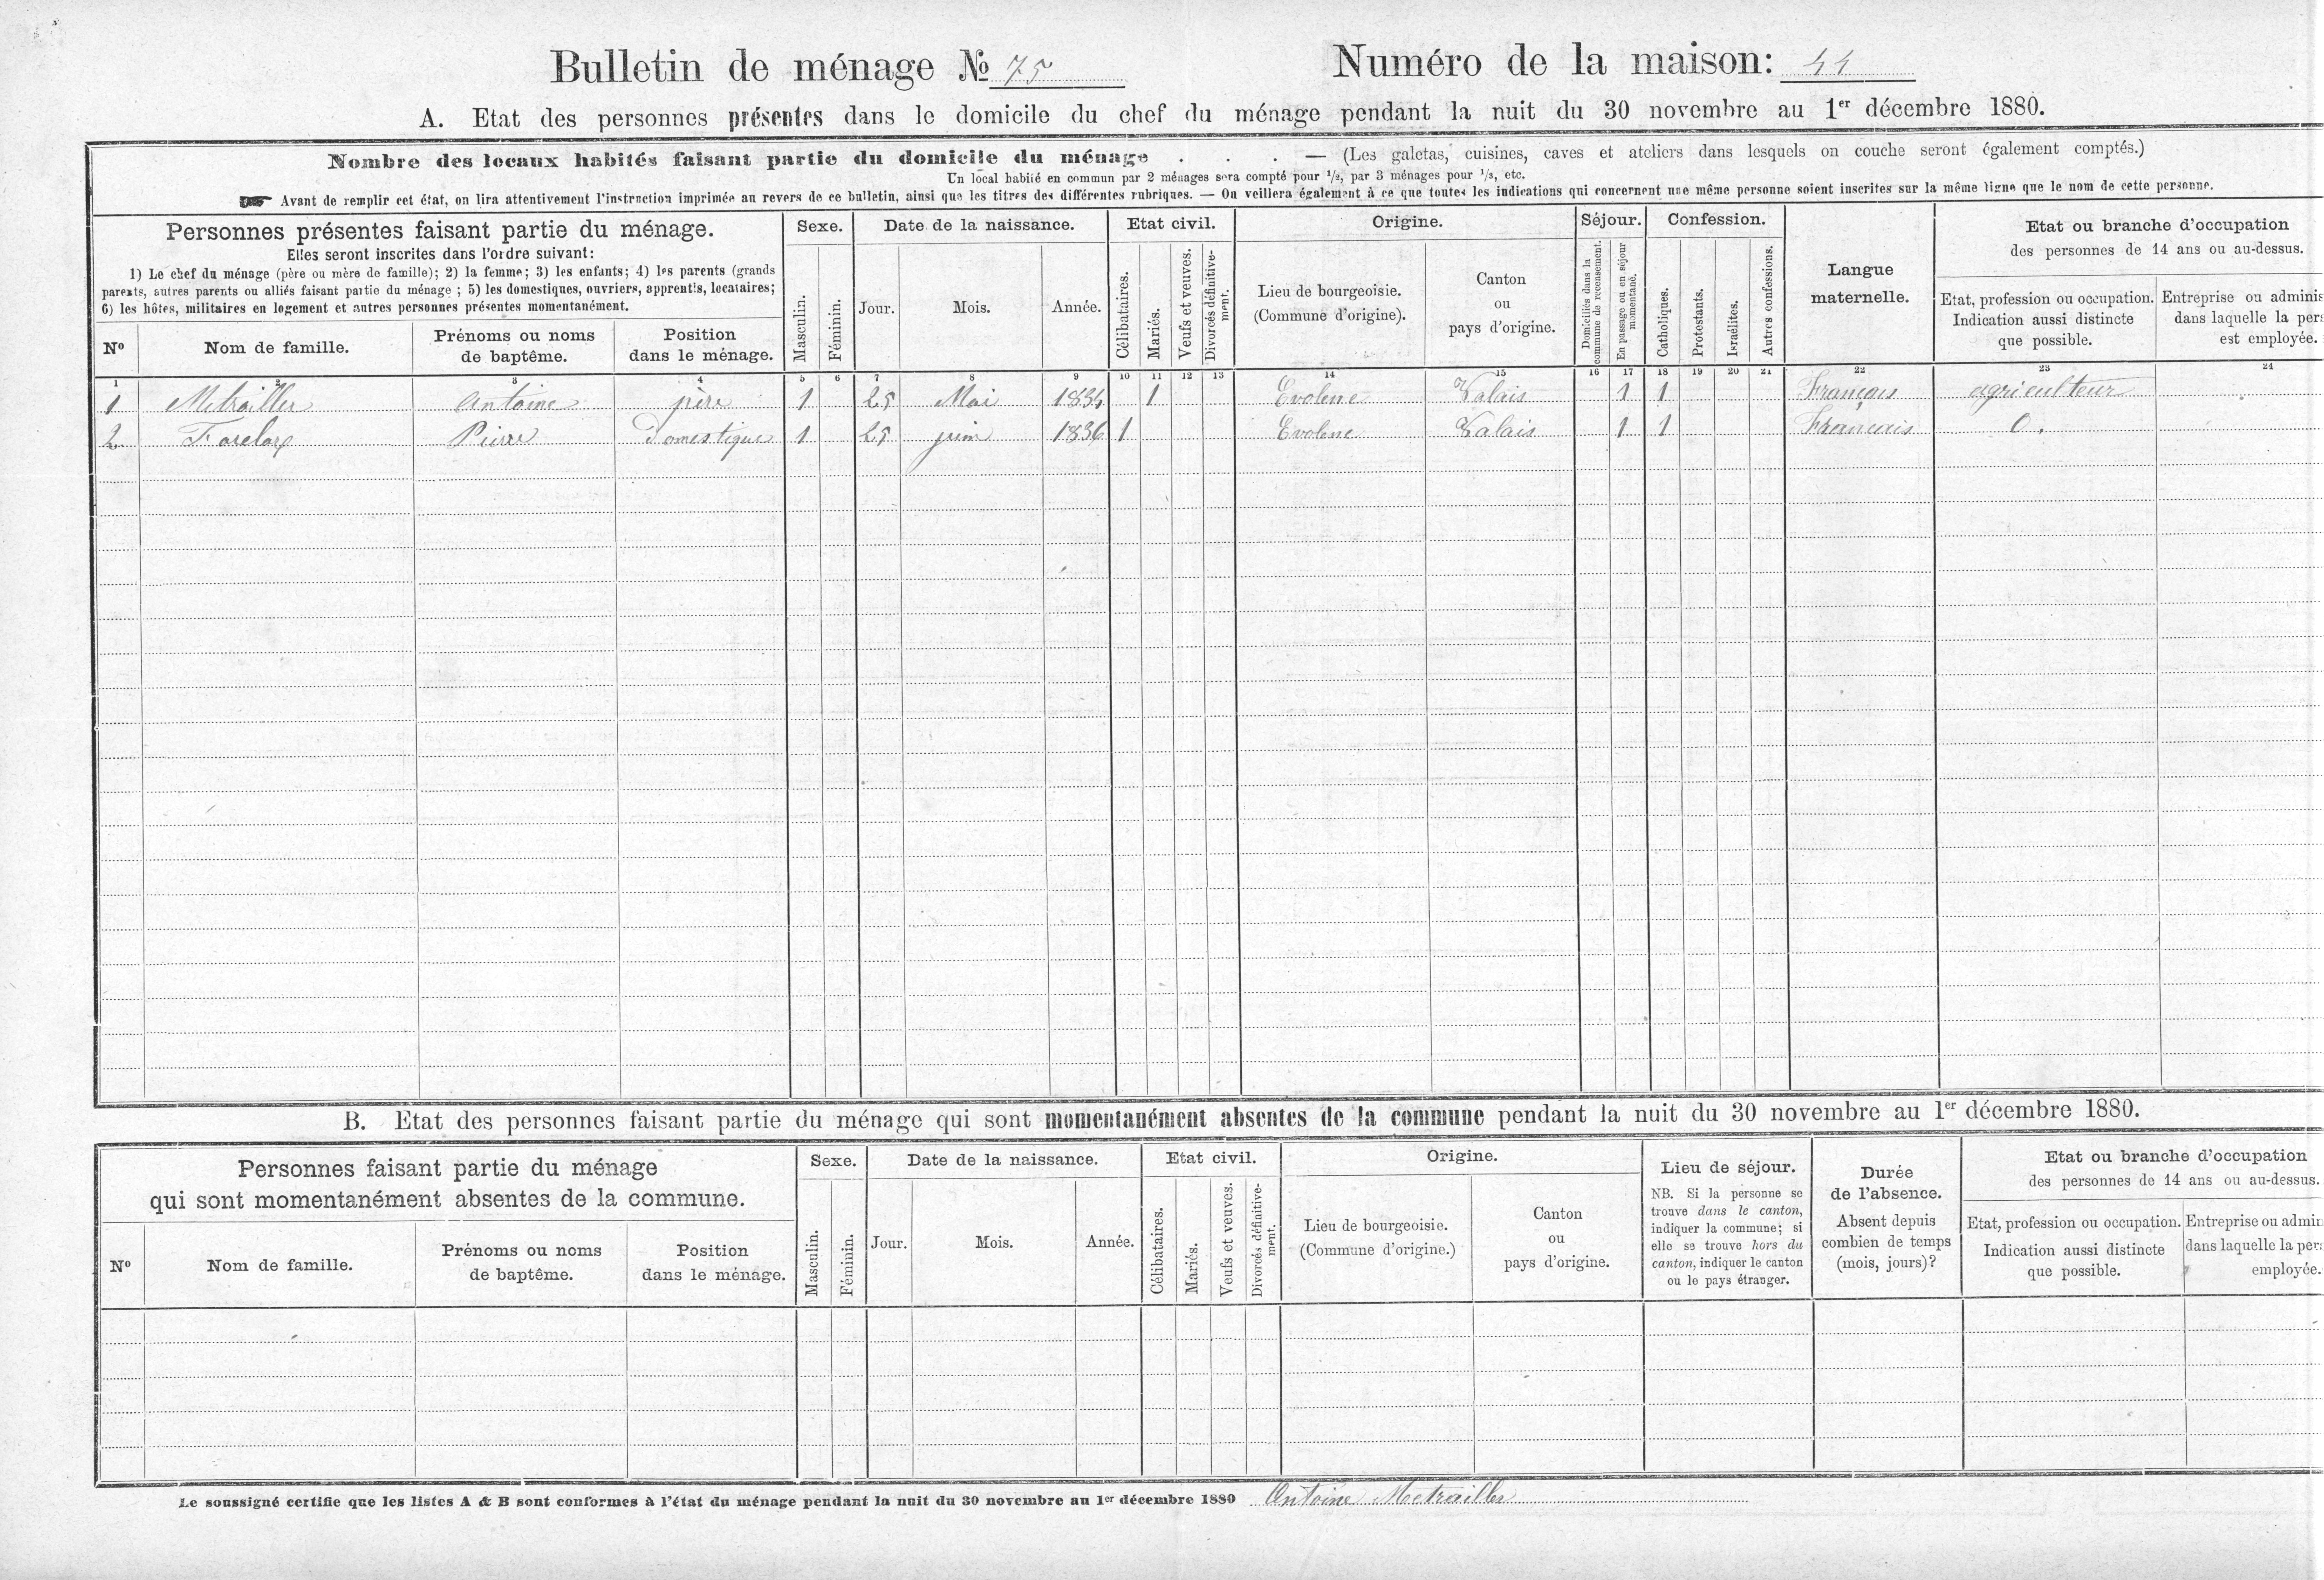 Bulletin de ménage № 75
Numéro de la maison: 44
A. Etat des personnes présentes dans le domicile du chef du ménage pendant la nuit du 30 novembre au 1er décembre 1880.
Nombre des locaux habités faisant partie du domicile du ménage . . . — (Les galetas, cuisines, caves et ateliers dans lesquels on couche seront également comptés.)
Un local habité en commun par 2 ménages sera compté pour 1/2, par 3 ménages pour 1/3, etc.
Avant de remplir cet état, on lira attentivement l'instruction imprimée au revers de ce bulletin, ainsi que les titres des différentes rubriques. — On veillera également à ce que toutes les indications qui concernent une même personne soient inscrites sur la même ligne que le nom de cette personne.
Personnes présentes faisant partie du ménage.
Elles seront inscrites dans l'ordre suivant:
1) Le chef du ménage (père ou mère de famille); 2) la femme; 3) les enfants; 4) les parents (grands
parents, autres parents ou alliés faisant partie du ménage ; 5) les domestiques, ouvriers, apprentis, locataires;
6) les hôtes, militaires en logement et autres personnes présentes momentanément.
Nº
Nom de famille.
Prénoms ou noms
de baptême.
Position
dans le ménage.
Sexe.
Masculin.
Féminin.
Date de la naissance.
Jour.
Mois.
Année.
Etat civil.
Célibataires.
Mariés.
Veufs et veuves.
Divorcés définitive-
ment.
Origine.
Lieu de bourgeoisie.
(Commune d'origine).
Canton
ou
pays d'origine.
Séjour.
Domiciliés dans la
commune de recensement.
En passage ou en séjour
momentané.
Confession.
Catholiques.
Protestants.
Israélites.
Autres confessions.
Langue
maternelle.
Etat ou branche d'occupation
des personnes de 14 ans ou au-dessus.
Etat, profession ou occupation.
Indication aussi distincte
que possible.
Entreprise ou adminis
dans laquelle la pers
est employée.
1 2 3 4 5 6 7 8 9 10 11 12 13 14 15 16 17 18 19 20 21 22 23 24
1 Metrailler Antoine père 1 25 Mai 1834 1 Evolene Valais 1 1 Français agriculteur
2 Pierre Domestique 1 25 juin 1836 1 Evolene Valais 1 1 Français 0.
B. Etat des personnes faisant partie du ménage qui sont momentanément absentes de la commune pendant la nuit du 30 novembre au 1er décembre 1880.
Personnes faisant partie du ménage
qui sont momentanément absentes de la commune.
Nº
Nom de famille.
Prénoms ou noms
de baptême.
Position
dans le ménage.
Sexe.
Masculin.
Féminin.
Date de la naissance.
Jour.
Mois.
Année.
Etat civil.
Célibataires.
Mariés.
Veufs et veuves.
Divorcés définitive-
ment.
Origine.
Lieu de bourgeoisie.
(Commune d'origine.)
Canton
ou
pays d'origine.
Lieu de séjour.
NB. Si la personne se
trouve dans le canton,
indiquer la commune; si
elle se trouve hors du
canton, indiquer le canton
ou le pays étranger.
Durée
de l'absence.
Absent depuis
combien de temps
(mois, jours)?
Etat ou branche d'occupation
des personnes de 14 ans ou au-dessus.
Etat, profession ou occupation.
Indication aussi distincte
que possible.
Entreprise ou admin
dans laquelle la per
employée.
Le soussigné certifie que les listes A & B sont conformes à l'état du ménage pendant la nuit du 30 novembre au 1er décembre 1880 Antoine Metrailler